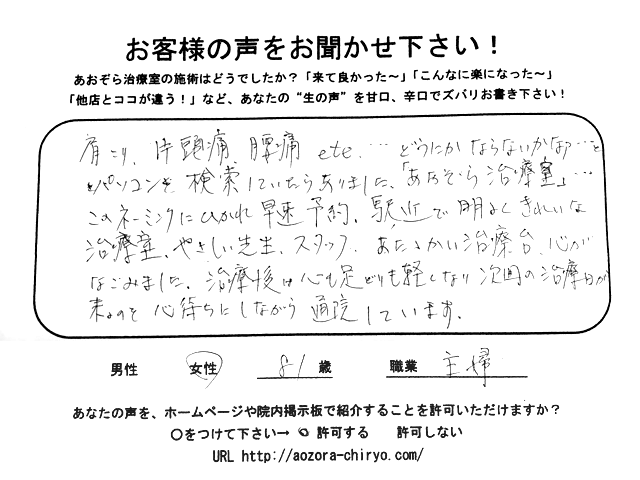 お客様の声をお聞かせ下さい！
あおぞら治療室の施術はどうでしたか？「来て良かった～」「こんなに楽になった～」
「他店とココが違う！」など、あなたの“生の声”を甘口、辛口でズバリお書き下さい！
肩こり、片頭痛、腰痛 etc.… どうにかならないかなぁ…と
パソコンを検索していたらありました、「あおぞら治療室」…
このネーミングにひかれ早速予約、駅近で明るくきれいな
治療室、やさしい先生、スタッフ、あたたかい治療台、心が
なごみました、治療後は心も足どりも軽くなり次回の治療日が
来るのを心待ちにしながら通院しています.
男性 女性 81歳 職業 主婦
あなたの声を、ホームページや院内掲示板で紹介することを許可いただけますか？
○をつけて下さい→ ○ 許可する 許可しない
URL http://aozora-chiryo.com/